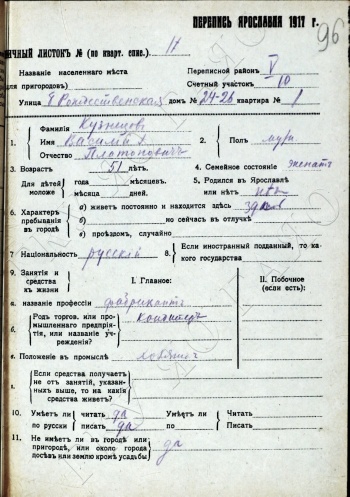 ПЕРЕПИСЬ ЯРОСЛАВЛЯ 1917 г.
96
ИЧНЫЙ ЛИСТОКЪ № (по кварт. спис.) 17
Названіе населеннаго мѣста
Переписной районъ V
для пригородовъ)
Счетный участокъ 10
Улица Рождественская домъ № 24-26 квартира № 1
1. Фамилія Кузнецовъ
Имя Василій
Отчество Платоновичъ
2. Полъ муж
3. Возрастъ 51 лѣтъ.
Для дѣтей моложе года мѣсяцевъ.
мѣсяца дней.
4. Семейное состояніе женатъ
5. Родился въ Ярославлѣ
или нѣтъ нѣтъ
6. Характеръ пребыванія въ городѣ
а) живетъ постоянно и находится здѣсь
б) но сейчасъ въ отлучкѣ
в) проѣздомъ, случайно
7 Національность русскій
8. Если иностранный подданный, то какого государства
9. Занятія и средства къ жизни
I. Главное:
II. Побочное (если есть):
а. названіе профессіи фабрикантъ
б. Родъ торгов. или промышленнаго предпріятія, или названіе учрежденія? кондитеръ
в. Положеніе въ промыслѣ хозяинъ
г. Если средства получаетъ не отъ занятій, указанныхъ выше, то на какія средства живетъ?
10. Умѣетъ ли читать да
по русски писать да
Умѣетъ ли Читать
по Писать
11. Не имѣетъ ли въ городѣ или пригородѣ, или около города посѣв или землю кромѣ усадьбы да